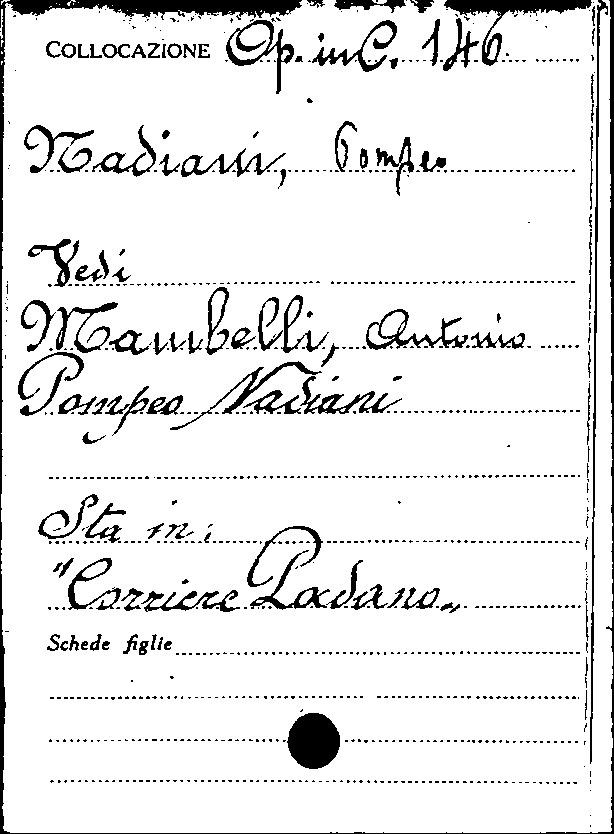 COLLOCAZIONE Op. in C. 146
Nadiani, Pompeo
Vedi
Mambelli, Antonio
Pompeo Nadiani
Sta in:
"Corriere Padano„
Schede figlie